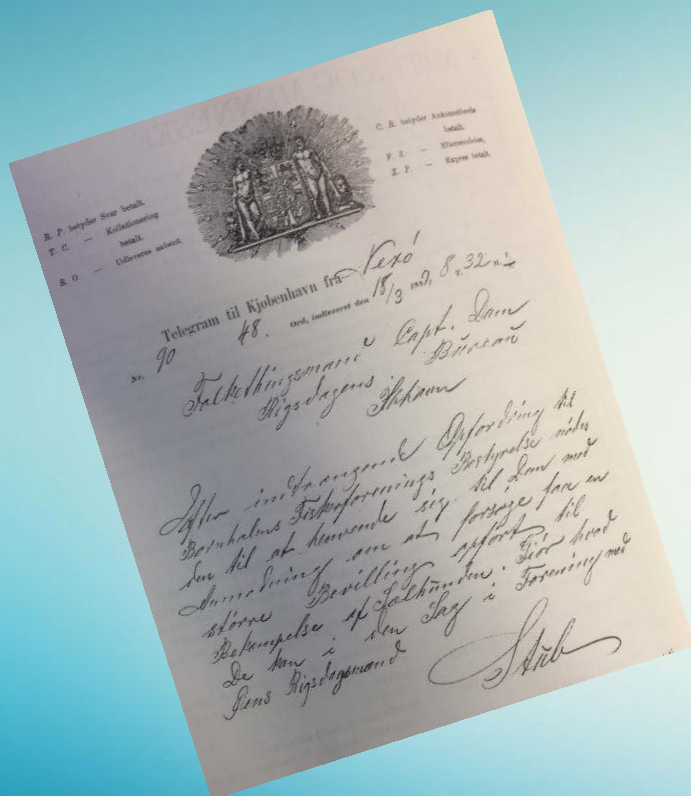 R. P. betyder Svar betalt.
T. C. — Kollationering
betalt.
R. O. — Udleveres aabent.
C. R. betyder Ankomstbevis
betalt.
F. S. — Eftersendelse,
X. P. — Expres betalt.
Telegram til Kjøbenhavn fra Nexø
Nr. 90 48. Ord, indleveret den 18/3 8.32
Folkethingsmand Capt. Dam
Rigsdagens Büreaü
Khavn
Efter indtrængende Opfordring til
Bornholms Fiskerforenings Bestyrelse nødes
den til at henvende sig til Dem med
Anmodning om at forsøge faae en
større Bevilling opført til
Bekæmpelse af Sælhünden. Gjør hvad
De kan i den Sag i Forening med
Øens Rigsdagsmænd
Stüb